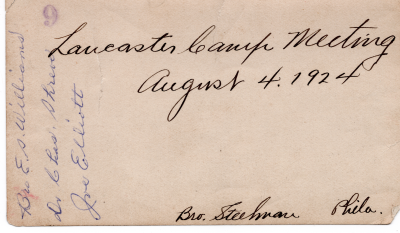 Lancaster Camp Meeting
August 4. 1924
Bro. Steelman Phila.
Bro E. S. Williams
Dr Chas. Shreve
Joe Elliott
9